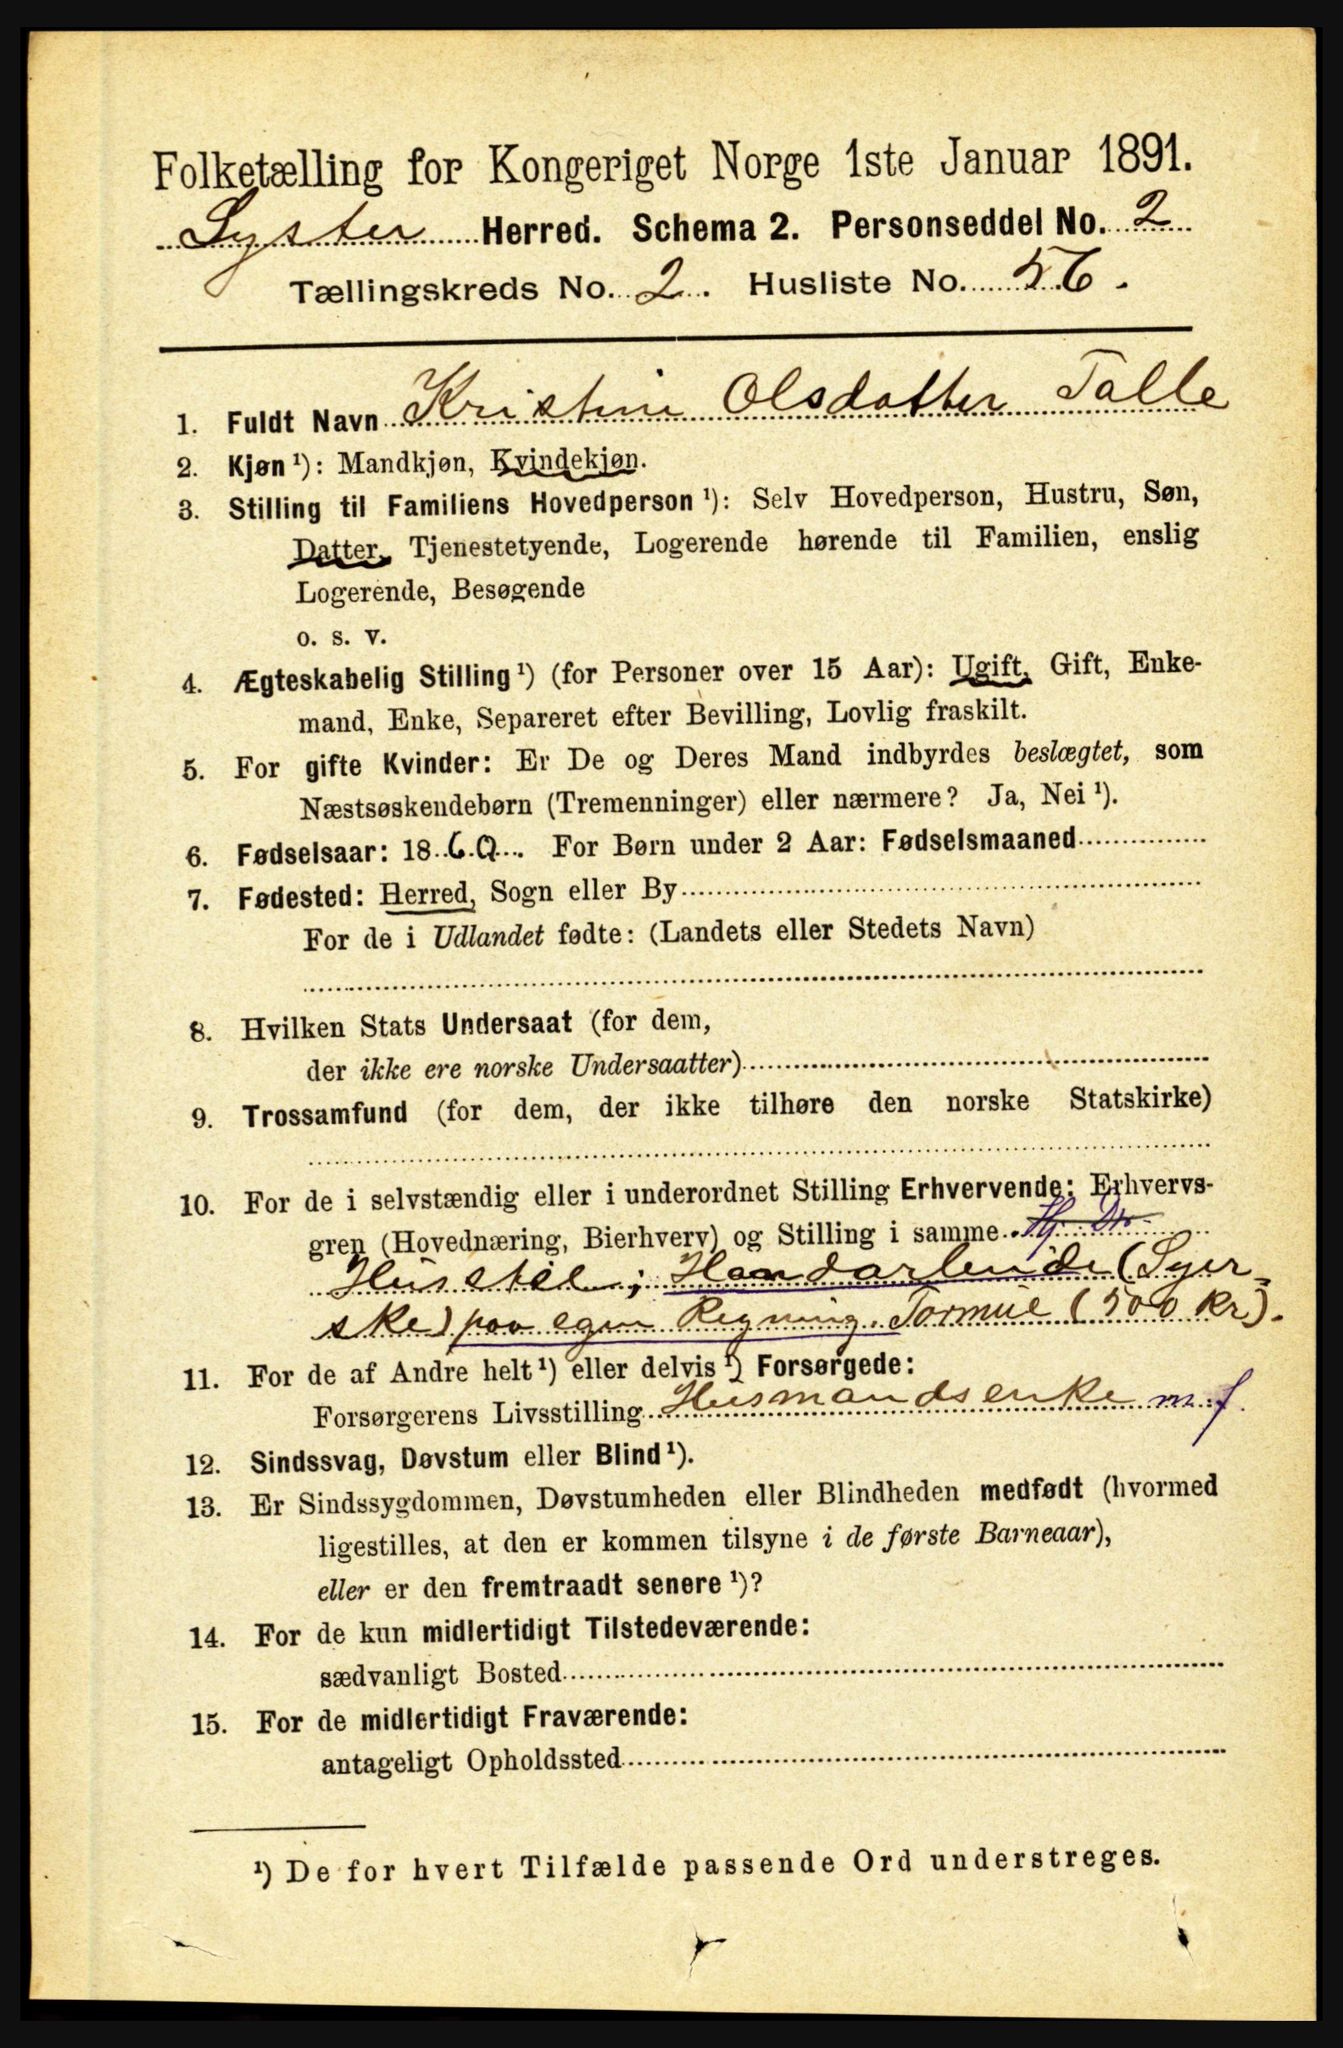 Folketælling for Kongeriget Norge 1ste Januar 1891.
Lyster Herred. Schema 2. Personseddel No. 2
Tællingskreds No. 2. Husliste No. 56.
1. Fuldt Navn Kristine Olsdatter Talle
2. Kjøn ¹): Mandkjøn, Kvindekjøn.
3. Stilling til Familiens Hovedperson ¹): Selv Hovedperson, Hustru, Søn,
Datter, Tjenestetyende, Logerende hørende til Familien, enslig
Logerende, Besøgende
o. s. v.
4. Ægteskabelig Stilling ¹) (for Personer over 15 Aar): Ugift, Gift, Enke-
mand, Enke, Separeret efter Bevilling, Lovlig fraskilt.
5. For gifte Kvinder: Er De og Deres Mand indbyrdes beslægtet, som
Næstsøskendebørn (Tremenninger) eller nærmere? Ja, Nei ¹).
6. Fødselsaar: 1860. For Børn under 2 Aar: Fødselsmaaned
7. Fødested: Herred, Sogn eller By
For de i Udlandet fødte: (Landets eller Stedets Navn)
8. Hvilken Stats Undersaat (for dem,
der ikke ere norske Undersaatter)
9. Trossamfund (for dem, der ikke tilhøre den norske Statskirke)
10. For de i selvstændig eller i underordnet Stilling Erhvervende: Erhvervs-
gren (Hovednæring, Bierhverv) og Stilling i samme
Husstel; Haandarbeide (Syer-
ske) paa egen Regning. Formue (500 Kr).
11. For de af Andre helt ¹) eller delvis ¹) Forsørgede:
Forsørgerens Livsstilling Husmandsenke m. f.
12. Sindssvag, Døvstum eller Blind ¹).
13. Er Sindssygdommen, Døvstumheden eller Blindheden medfødt (hvormed
ligestilles, at den er kommen tilsyne i de første Barneaar),
eller er den fremtraadt senere ¹)?
14. For de kun midlertidigt Tilstedeværende:
sædvanligt Bosted
15. For de midlertidigt Fraværende:
antageligt Opholdssted
¹) De for hvert Tilfælde passende Ord understreges.